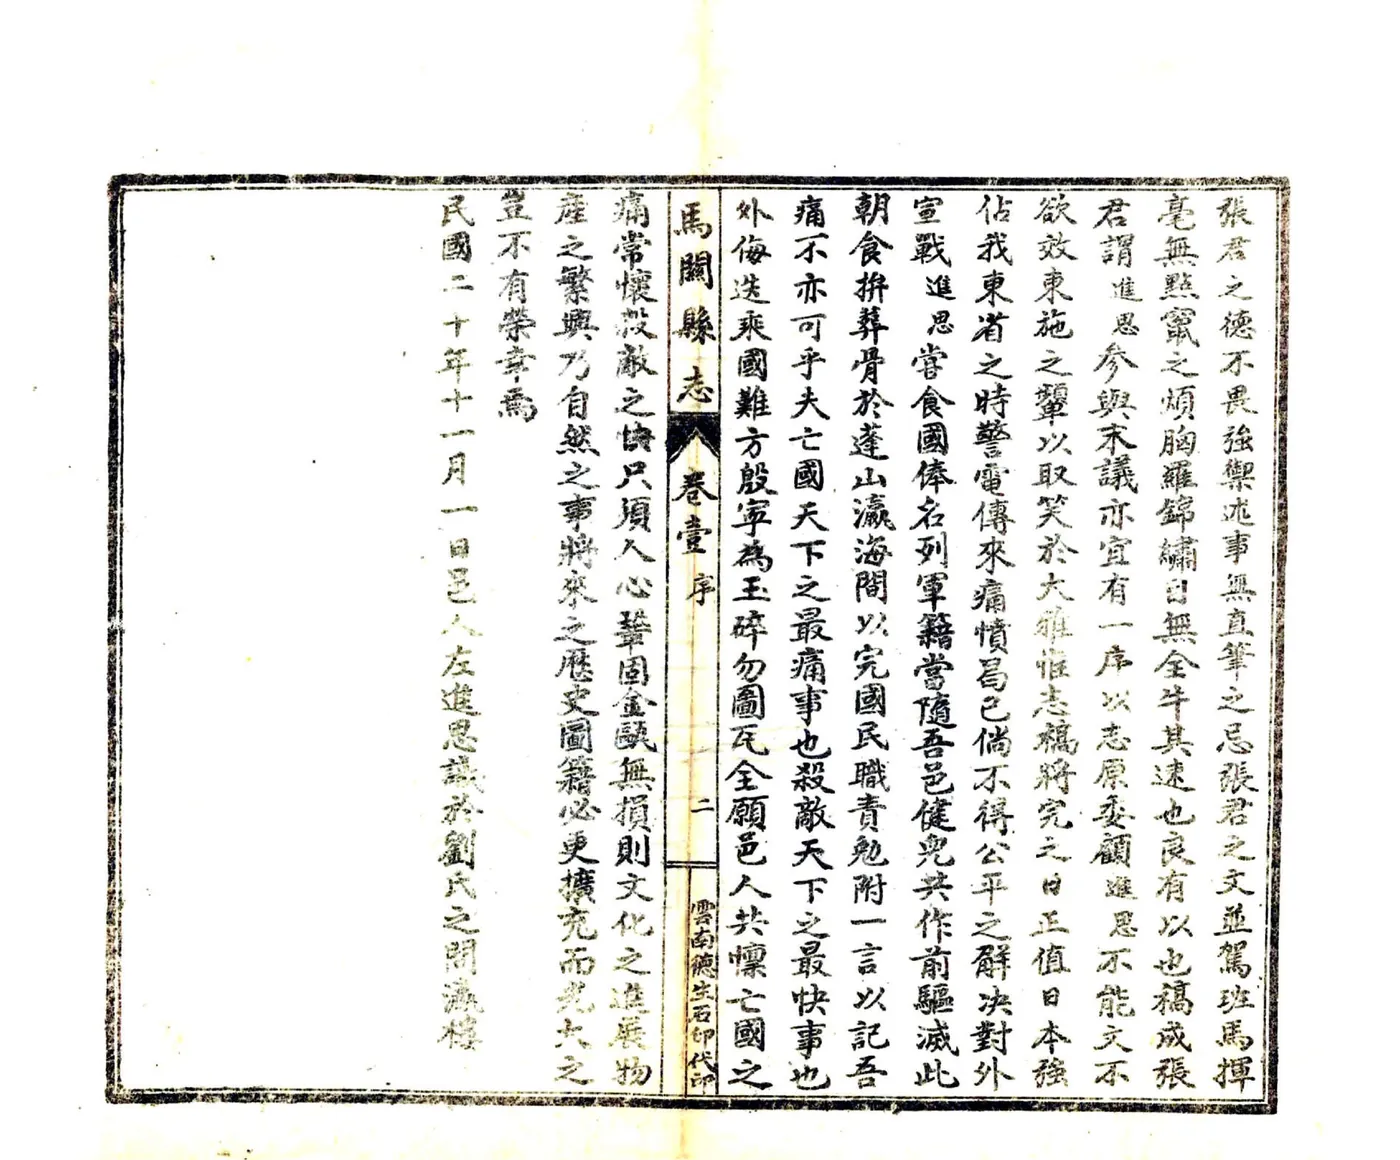 張君之德不畏強禦述事無直筆之忌張君之文並駕班馬揮
毫無點竄之煩胸羅錦繡目無全牛其速也良有以也稿成張
君謂進思參與末議亦宜有一序以志原委顧進思不能文不
欲效東施之顰以取笑於大雅惟志稿將完之日正值日本強
佔我東省之時警電傳來痛憤曷已倘不得公平之解决對外
宣戰進思嘗食國俸名列軍籍當隨吾邑健兒共作前驅滅此
朝食拚葬骨於蓬山瀛海間以完國民職責勉附一言以記吾
痛不亦可乎夫亡國天下之最痛事也殺敵天下之最快事也
外侮迭乘國難方殷寧為玉碎勿圖瓦全願邑人共懍亡國之
馬關縣志 卷壹 序 二 雲南德生石印代印
痛常懷殺敵之快只須人心鞏固金甌無損則文化之進展物
產之繁興乃自然之事將來之歷史圖籍必更擴充而光大之
豈不有榮幸焉
民國二十年十一月一日邑人左進思識於劉氏之閒瀛樓